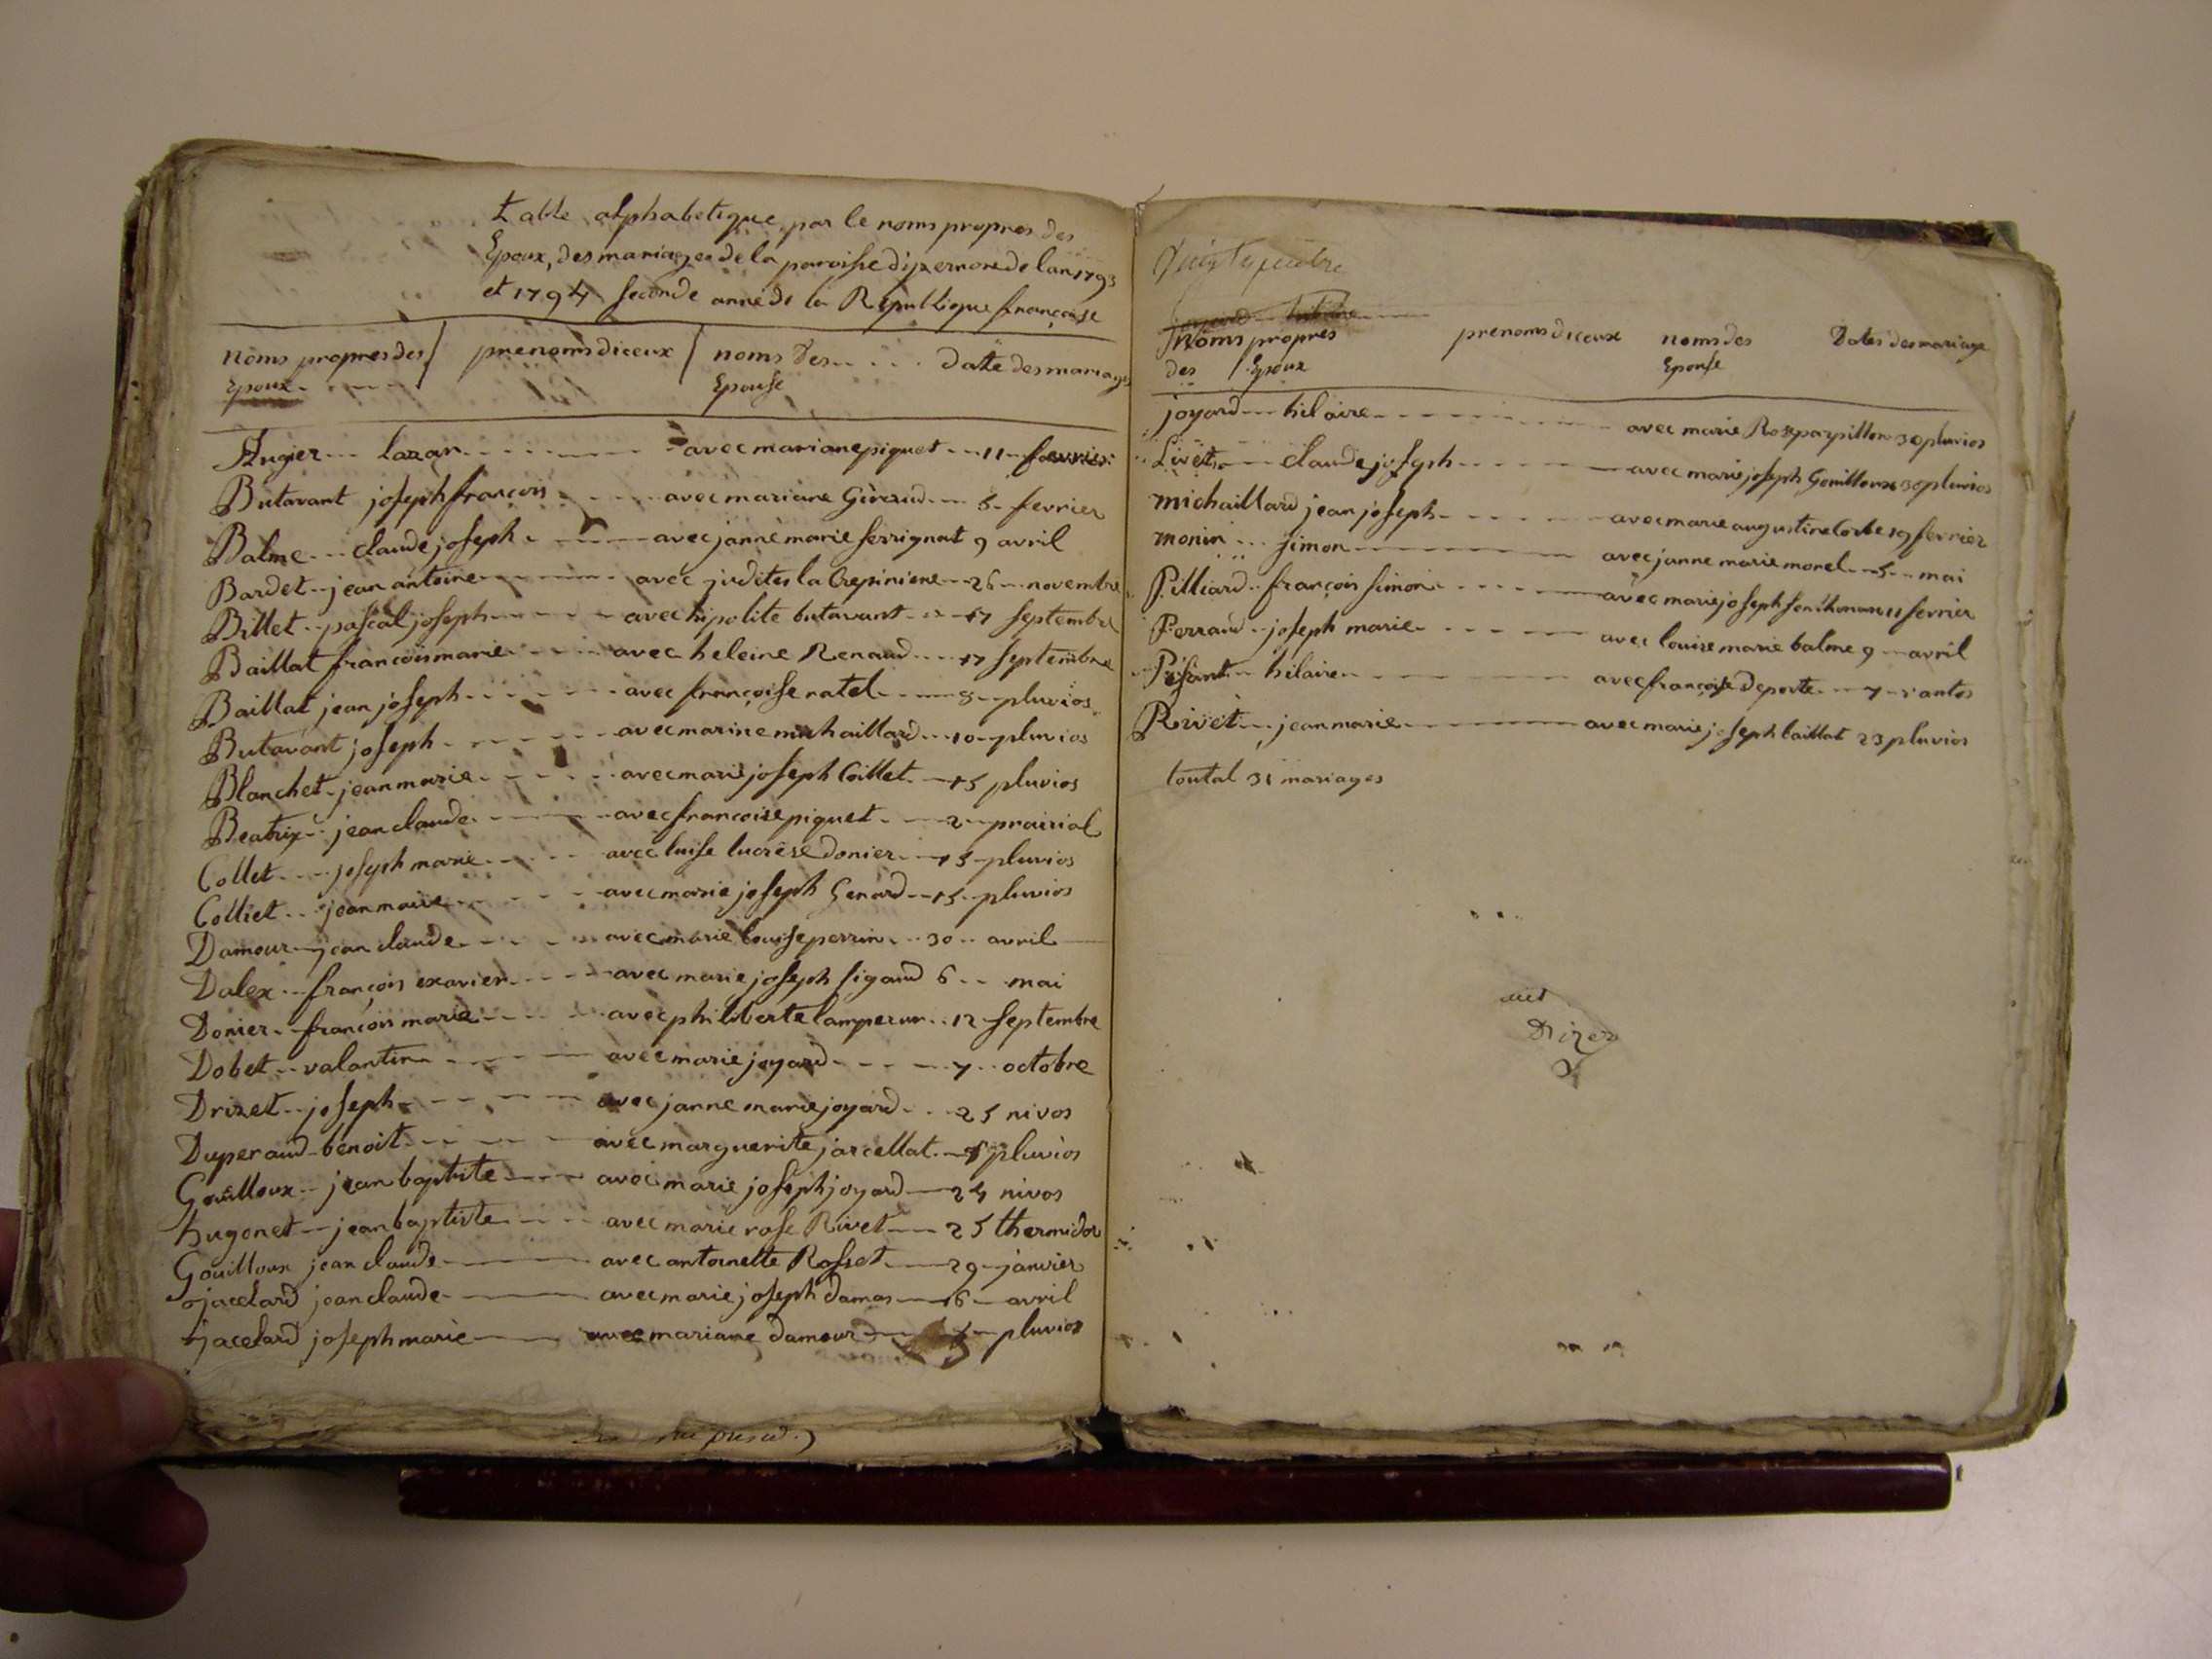 table alphabetique par le noms propres des
Epoux, des mariages de la paroisse d'izernore de lan 1793
et 1794 seconde anné de la Republique françoise
noms propres des / prenoms diceux / noms des . . . . date des mariages
Epoux Epouse
Augier lazar avec mariane piquet 11 fevrier
Butavant joseph francois avec mariane Giraud 5 fevrier
Balme claude joseph avec janne marie ferrignat 9 avril
Bardet jean antoine avec judites la Crepiniene 26 novembre
Billet pascal joseph avec hipolite butavant 17 septembre
Baillat francois marie avec heleine Renaud 17 septembre
Baillat jean joseph avec françoise ratel 8 pluvios
Butavant joseph avec marine michaillard 10 pluvios
Blanchet jean marie avec marie joseph Coillet 15 pluvios
Beatrix jean claude avec francoise piquet 2 prairial
Collet joseph marie avec luise lucrèse donier 15 pluvios
Colliet jean marie avec marie joseph Genard 15 pluvios
Damour jean claude avec marie louise perrin 30 avril
Dalex françois exavier avec marie joseph sigaud 6 mai
Donier françois marie avec philiberte lamperur 12 septembre
Dobet valantin avec marie joyard 7 octobre
Drizet joseph avec janne marie joyard 25 nivos
Duperaud benoit avec marguerite jarcellat pluvios
Gouilloux jean baptiste avec marie joseph joyard 24 nivos
hugonet jean baptiste avec marie rose Rivet 25 thermidor
Gouilloux jean claude avec antoinette Rosset 29 janvier
jacelard jean claude avec marie joseph damas 16 avril
jacelard joseph marie avec mariane damour pluvios
noms propres prenoms diceux noms des Dates des mariage
des Epoux Epouse
joyard hilaire avec marie Rose parpillon 30 pluvios
Livet claude joseph avec marie joseph Gouilloux 30 pluvios
michaillard jean joseph avec marie augustine 19 fevrier
monin simon avec janne marie morel 5 mai
Pilliard françois simon avec marie joseph 11 fevrier
Perraud joseph marie avec louise marie balme 9 avril
Pisant hilaire avec françoise deporte 7 vantos
Rivet jean marie avec marie joseph baillat 23 pluvios
toutal 31 mariages